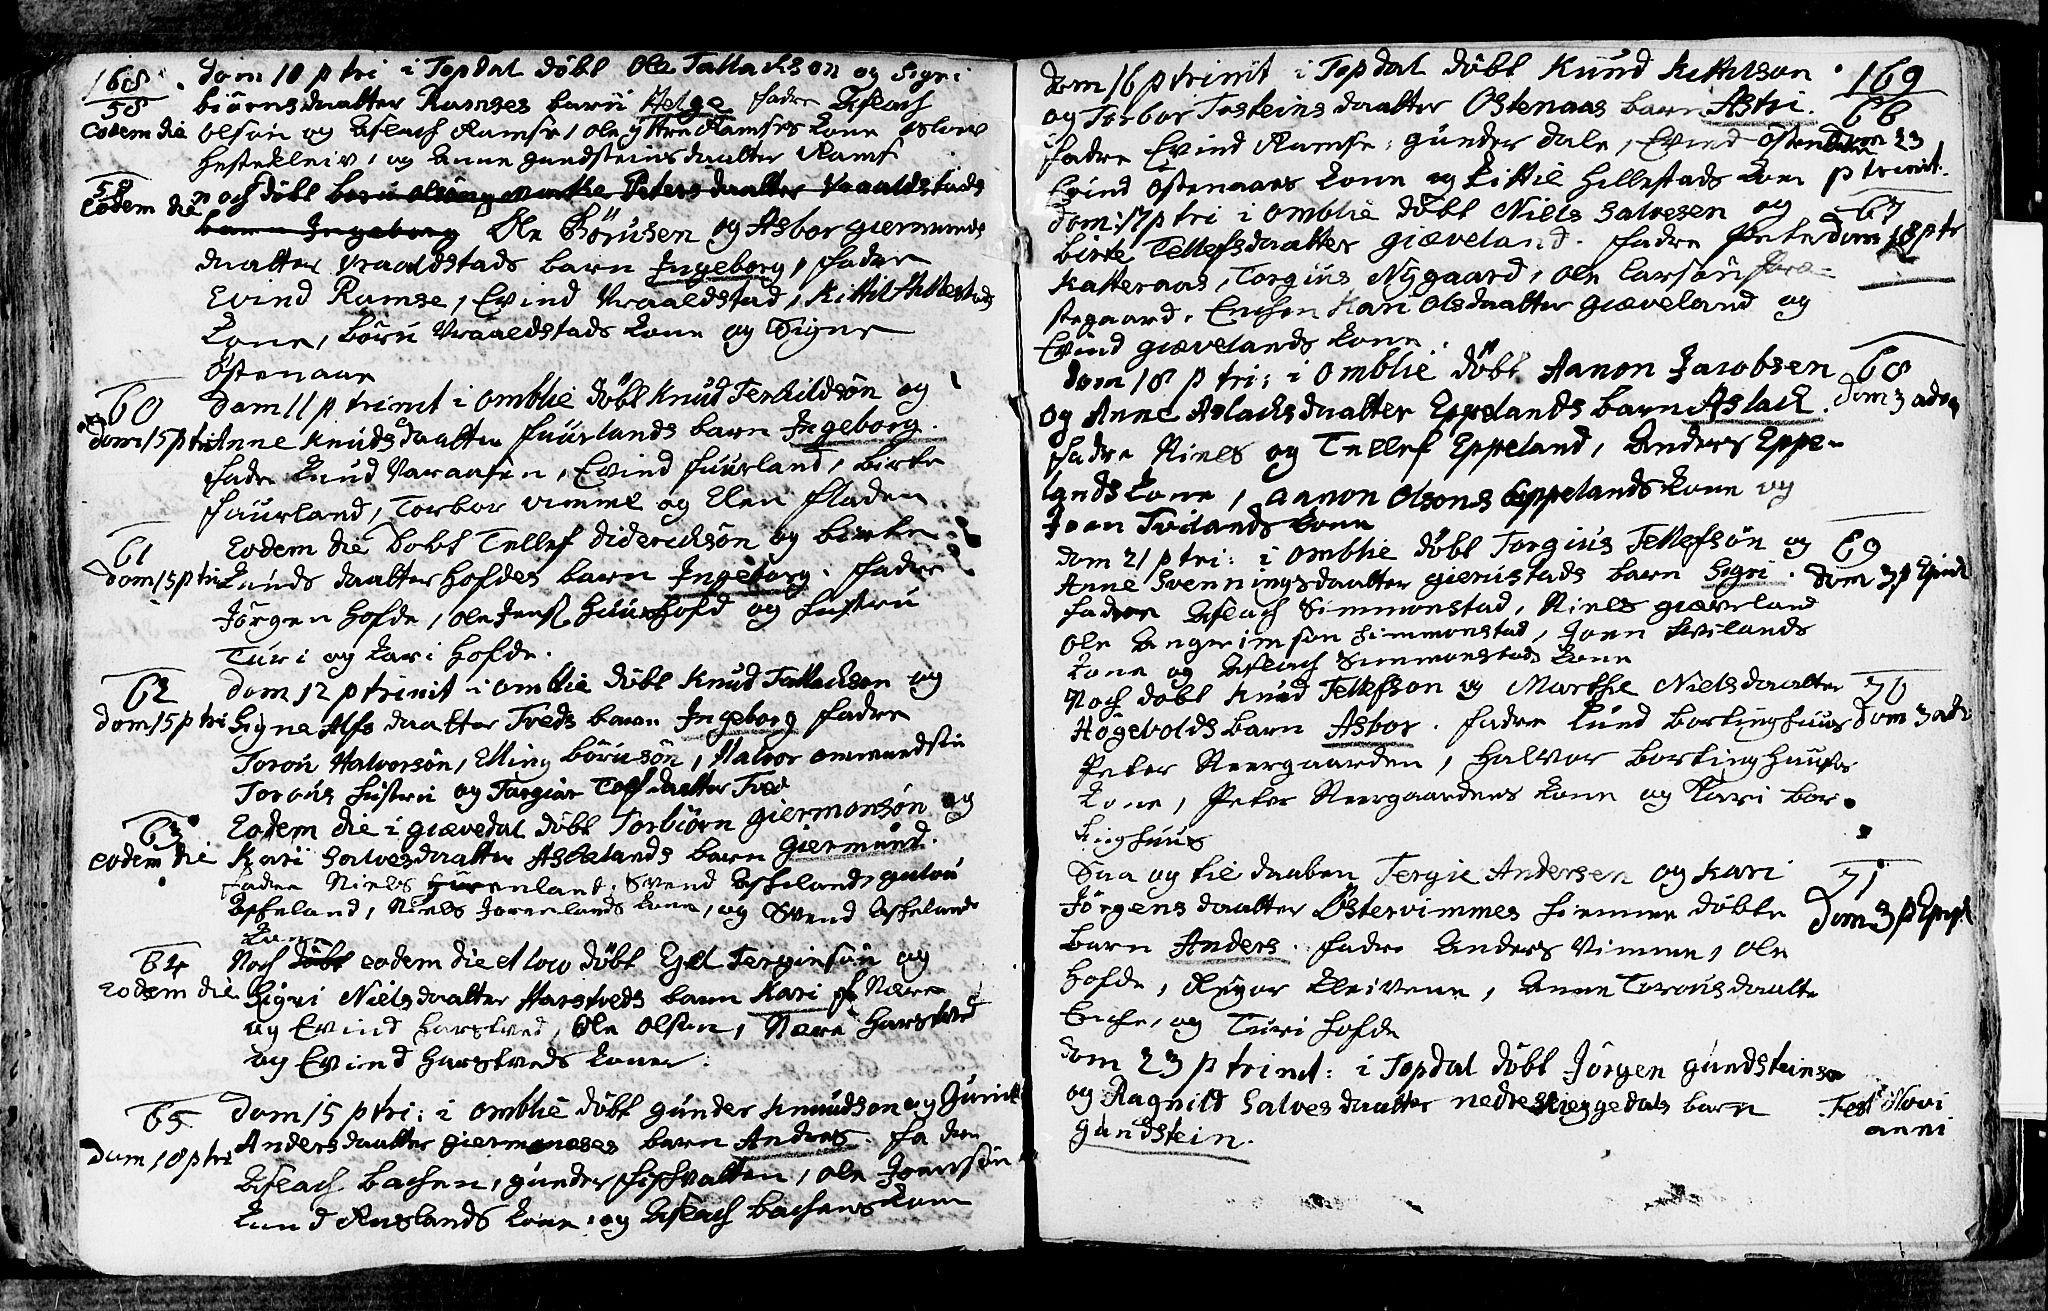 168
58
eodem die
dom 10 p tri i Topdal döbt Ole Tallackson og Sigri
biörnsdaatter Ramses barn Helge fadre Aslach
Olson og Aslach Ramse, Ole yttre Ramses kone
Hestekleiv, og Anne gundsteinsdaatter Rams
59
eodem die
noch döbt Peters daatter Vraaldstads
barn Ingeborg Ole Börusen og Asbor giermunds
daatter Vraaldstads barn Ingeborg, fadre
Evind Ramse, Evind Vraaldstad, Kittil Hillestads
kone, böru Vraaldstads kone og Signe
Östenaas
60
dom 15 p tri
dom 11 p trinit i omblie döbt Knud Terkildsön og
Anne Knudsdaatter fuurlands barn Ingeborg.
fadre knud Varaasen, Evind fuurland, birte
fuurland, Torbor vimme og Elen fladen
61
dom 15 p tri
Eodem die döbt Tellef didericksön og birte
knudsdaatter hofdes barn Ingeborg. fadre
Jörgen hofde, ole Jens huushofd og hustru
Turi og kari hofde.
62
dom 15 p tri
dom 12 p trinit i omblie döbt Knud Tallackson og
Signe Alfsdaatter Tveds barn Ingeborg fadre
Toron Halvorsön, Elling börusön, Halvor
Torous hustru og Torgier daatter Tved
63
eodem die
Eodem die i giævedal döbt Torbiörn giermonsön og
Kari Salvesdaatter Askelands barn giermund.
fadre Niels Jurenland, Svend Askeland,
Askeland, Niels Jorenlands kone, og Svend Askelands
kone
64
eodem die
Noch döbt eodem die döbt Egel Terginsön og
Sigri Nielsdaatter Harstveds barn Kari f Nære
og Evind harstved, Ole Olson, Nære Harstved
og Evind harstveds koner.
65
dom 18 p tri
dom 15 p tri: i omblie döbt gunder knudson og Gunild
Andersdaatter giermonses barn Andreas. fadre
Aslach bachen, gunder, ole Joensön
knud Ruslands kone, og Aslach bachens kone
169
66
dom 23
p trinit.
dom 16 p trinit i Topdal döbt Knud Kittilson
og Torbor Tosteins daatter Ostenaas barn Astri.
fadre Evind Ramse, gunder dale, Evind östenaas
Evind ostenaases kone og kittil hillestads kone
67
dom 18 p tr
dom: 17 p tri i omblie döbt Niels Salvesen og
birte Tellefsdaatter giæveland. fadre Peter
Katteraas, Torgius Nygaard, ole larson
stegaard, Enchen Kari olsdaatter giæveland og
Evind giævelands kone.
68
dom 3 adv
dom 18 p tri: i omblie döbt Aanon Jacobsen
og Anne Aslacksdaatter Eppelands barn Aslack.
fadre Niels og Tellef Eppeland, Anders Eppe-
lands kone, aanon Olsons Eppelands kone og
Joen Tvilands kone
69
dom 3 p Epiph
dom 21 p tri: i omblie döbt Torgius Tellefsön og
Anne Svenningsdaatter gierustads barn Sigri.
fadre Aslach Simmonstad, Niels giæveland
ole Angrimson Simmonstad, Joen kvilands
kone og Aslach Simmonstads kone
70
dom 3 adv
Noch döbt Knud Tellefson og Marthe Nielsdaatter
Högevolds barn Asbor. fadre knud borkinghuus
Peter Neergaarden, Halvor borkinghuuses
kone, Peter Neergaardens kone og Kari bor-
kinghuus
71
dom 3 p Epiph
Saa og til daaben Tergie Andersen og Kari
Jörgensdaatter Östervimmes hiemme döbte
barn Anders. fadre Anders Vimme, ole
hofde, Reyar kleivene, Anne Torousdaatter
, og Turi hofde
dom 23 p trinit: i Topdal döbt Jörgen gundsteinson
og Ragnild Salvesdaatter nedre barn
gundstein.
Fest Novi
anni